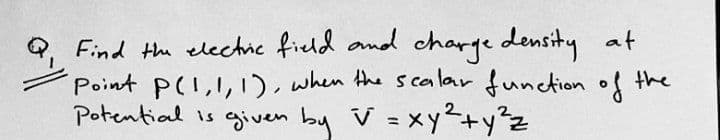 Q1 Find the electric field and charge density at
Point P(1,1,1), when the scalar function of the
Potential is given by V = xy²+y²z